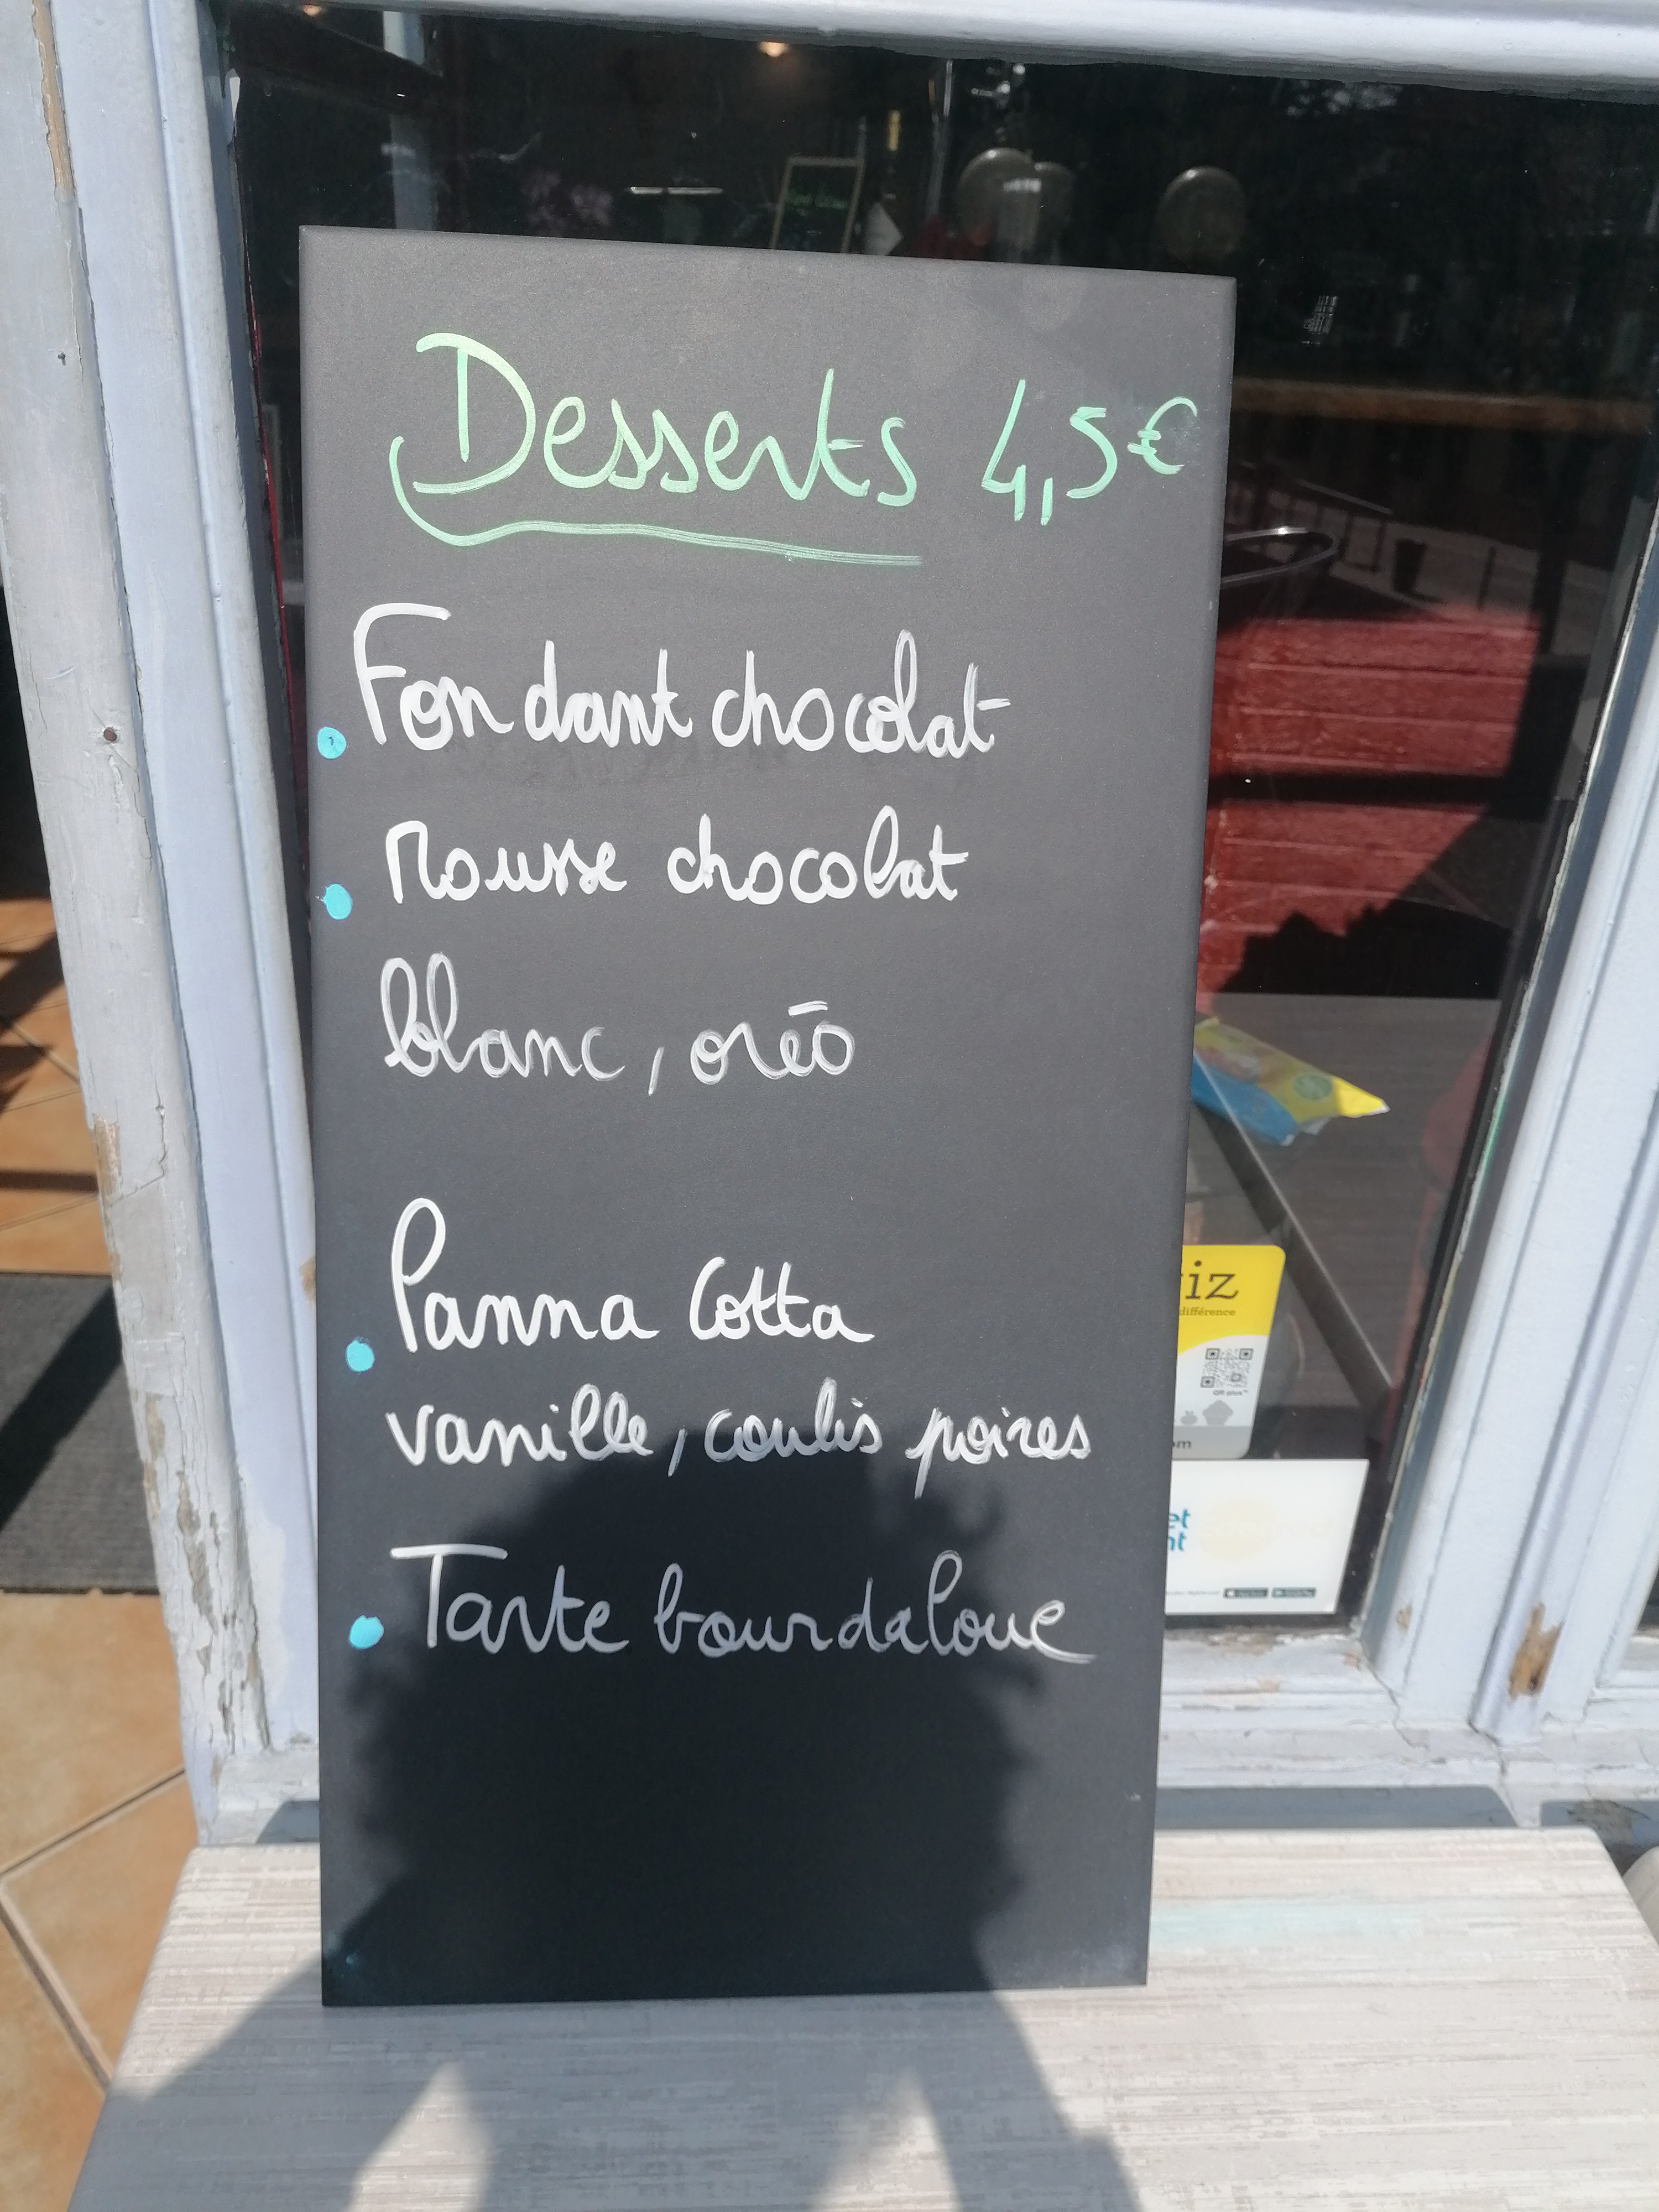 Desserts 4,5€
Fondant chocolat
Mousse chocolat
blanc, oréo
Panna Cotta
vanille, coulis poires
Tarte bourdaloue
iz
différence
QR plus
om
et
nt